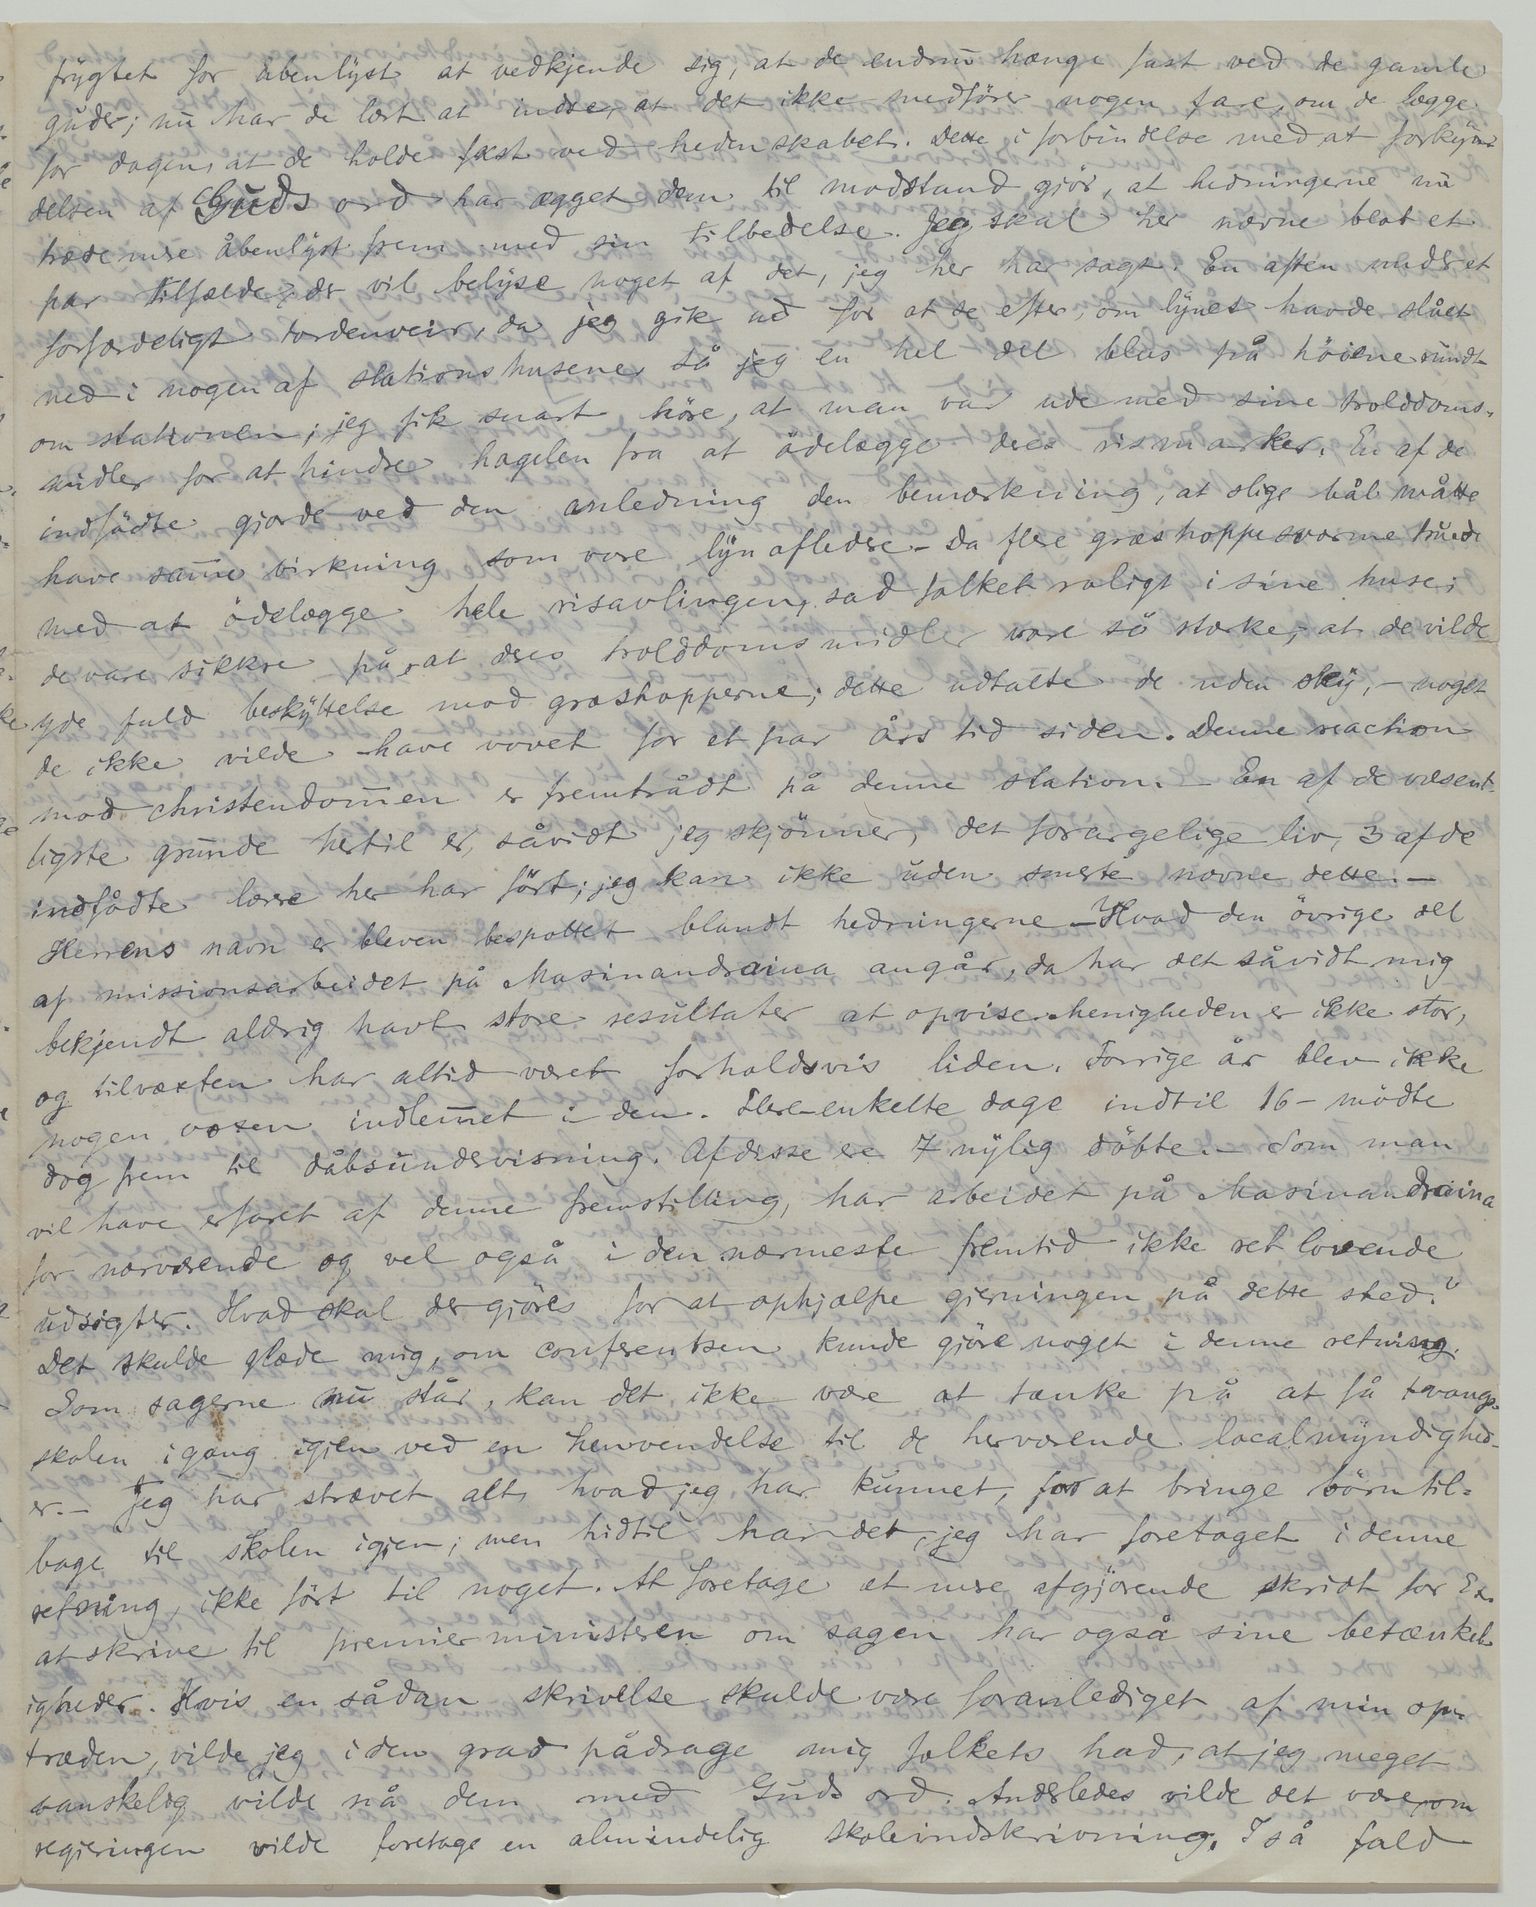 frygtet for åbenlyst at vedkjende sig, at de endnu hænge fast ved de gamle
guder; nu har de lært at indse, at det ikke medfører nogen fare, om de lægge
for dagen, at de holde fast ved hedenskabet. Dette i forbindelse med at forkyn-
delsen af Guds ord har ægget dem til modstand gjør, at hedningerne nu
træde mere åbenlyst frem med sin tilbedelse. Jeg skal her nævne blot et
par tilfælde, der vil belyse noget af det, jeg her har sagt. En aften under et
forfærdeligt tordenveir, da jeg gik ud for at se efter, om lynet havde slået
ned i nogen af stationshusene, så jeg en hel del blus på höiene rundt
om stationen; jeg fik snart höre, at man var ude med sine trolddoms-
midler for at hindre hagelen fra at ödelægge deres rismarker. En af de
indfödte gjorde ved den anledning den bemærkning, at slige bål måtte
have samme virkning som vore lynafledere. - Da flere græshoppesværme truede
med at ödelægge hele risavlingen, sad folket roligt i sine huse;
de vare sikkre på, at deres trolddomsmidler vare så stærke, at de vilde
yde fuld beskyttelse mod græshopperne; dette udtalte de uden sky, - noget
de ikke vilde have vovet for et par års tid siden. Denne reaction
mod christendommen er fremtrådt på denne station. - En af de væsent-
ligste grunde hertil er, såvidt jeg skjönner, det forargelige liv, 3 af de
indfödte lærere her har fört; jeg kan ikke uden smerte nævne dette. -
Herrens navn er bleven bespottet blandt hedningerne - Hvad den övrige del
af missionsarbeidet på Masinandraina angår, da har det såvidt mig
bekjendt aldrig havt store resultater at opvise. Menigheden er ikke stor,
og tilvæxten har altid været forholdsvis liden. Forrige år blev ikke
nogen voxen indlemmet i den. Flere enkelte dage indtil 16 - mödte
dog frem til dåbsundervisning. Af disse ere 7 nylig döbte. - Som man
vil have erfaret af denne fremstilling, har arbeidet på Masinandraina
for nærværende og vel også i den nærmeste fremtid ikke ret lovende
udsigter. Hvad skal der gjöres for at ophjælpe gjerningen på dette sted?
Det skulde glæde mig, om conferentsen kunde gjöre noget i denne retning.
Som sagerne nu står, kan det ikke være at tænke på at få tvangs-
skolen igang igjen ved en henvendelse til de herværende localmyndighed-
er. - Jeg har strævet alt, hvad jeg har kunnet, for at bringe börn til-
bage til skolen igjen; men hidtil har det, jeg har foretaget i denne
retning, ikke fört til noget. At foretage et mere afgjörende skridt for Ex.
at skrive til premierministeren om sagen har også sine betænkel-
igheder. Hvis en sådan skrivelse skulde være foranlediget af min op-
træden, vilde jeg i den grad pådrage mig folkets had, at jeg meget
vanskelig vilde nå dem med Guds ord. Anderledes vilde det være, om
regjeringen vilde foretage en almindelig skoleindskrivning. I så fald